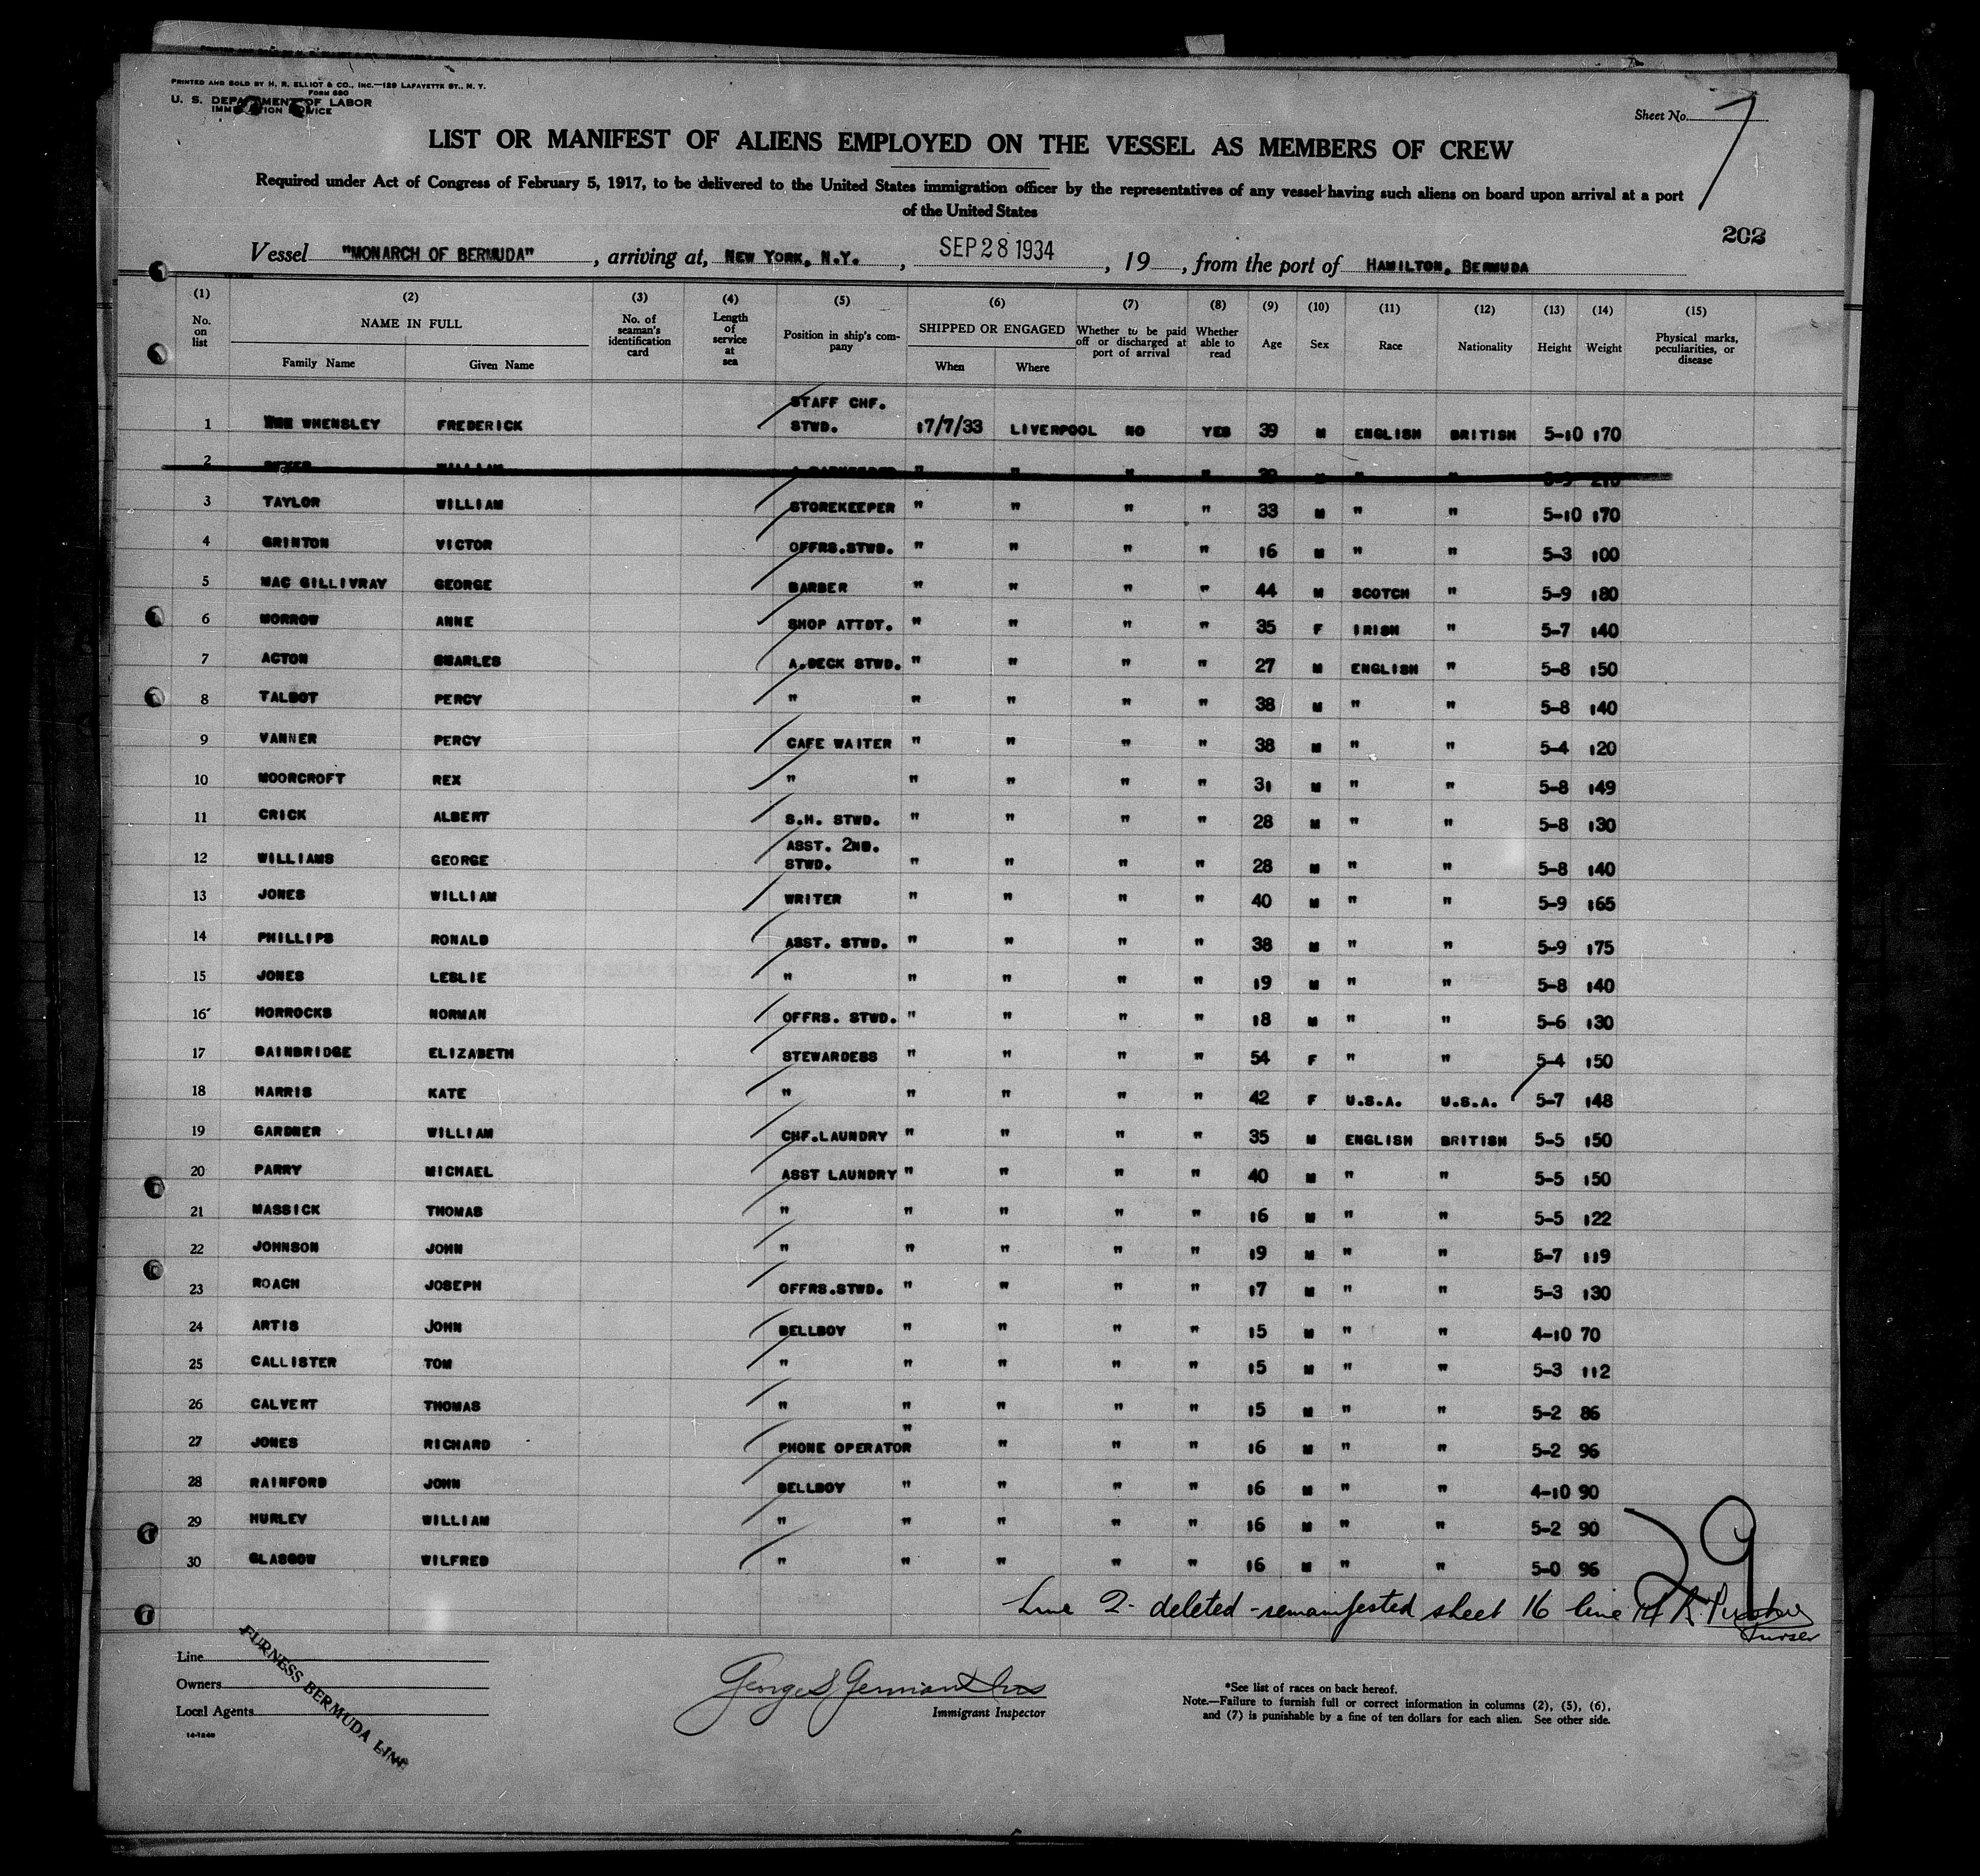 PRINTED AND SOLD BY H. R. ELLIOT & CO., INC.—129 LAFAYETTE ST., N. Y.
FORM 680
U. S. DEPARTMENT OF LABOR
IMMIGRATION SERVICE
Sheet No. 7
LIST OR MANIFEST OF ALIENS EMPLOYED ON THE VESSEL AS MEMBERS OF CREW
Required under Act of Congress of February 5, 1917, to be delivered to the United States immigration officer by the representatives of any vessel having such aliens on board upon arrival at a port
of the United States
202
Vessel "MONARCH OF BERMUDA", arriving at, NEW YORK, N.Y., SEP 28 1934, 19, from the port of HAMILTON, BERMUDA
(1) (2) (3) (4) (5) (6) (7) (8) (9) (10) (11) (12) (13) (14) (15)
No. on list NAME IN FULL Family Name Given Name No. of seaman's identification card Length of service at sea Position in ship's company SHIPPED OR ENGAGED When Where Whether to be paid off or discharged at port of arrival Whether able to read Age Sex Race Nationality Height Weight Physical marks, peculiarities, or disease
1 WHENSLEY FREDERICK STAFF CHF. STWD. 17/7/33 LIVERPOOL NO YES 39 M ENGLISH BRITISH 5-10 170
2 WILLIAM " " " " 39 M " " 5-9 210
3 TAYLOR WILLIAM STOREKEEPER " " " " 33 M " " 5-10 170
4 GRINTON VICTOR OFFRS.STWD. " " " " 16 M " " 5-3 100
5 MAC GILLIVRAY GEORGE BARBER " " " " 44 M SCOTCH " 5-9 180
6 MORROW ANNE SHOP ATTDT. " " " " 35 F IRISH " 5-7 140
7 ACTON CHARLES A.DECK STWD. " " " " 27 M ENGLISH " 5-8 150
8 TALBOT PERCY " " " " " 38 M " " 5-8 140
9 VANNER PERCY CAFE WAITER " " " " 38 M " " 5-4 120
10 MOORCROFT REX " " " " " 31 M " " 5-8 149
11 CRICK ALBERT S.H. STWD. " " " " 28 M " " 5-8 130
12 WILLIAMS GEORGE ASST. 2ND. STWD. " " " " 28 M " " 5-8 140
13 JONES WILLIAM WRITER " " " " 40 M " " 5-9 165
14 PHILLIPS RONALD ASST. STWD. " " " " 38 M " " 5-9 175
15 JONES LESLIE " " " " " 19 M " " 5-8 140
16 HORROCKS NORMAN OFFRS. STWD. " " " " 18 M " " 5-6 130
17 BAINBRIDGE ELIZABETH STEWARDESS " " " " 54 F " " 5-4 150
18 HARRIS KATE " " " " " 42 F U.S.A. U.S.A. 5-7 148
19 GARDNER WILLIAM CHF.LAUNDRY " " " " 35 M ENGLISH BRITISH 5-5 150
20 PARRY MICHAEL ASST LAUNDRY " " " " 40 M " " 5-5 150
21 MASSICK THOMAS " " " " " 16 M " " 5-5 122
22 JOHNSON JOHN " " " " " 19 M " " 5-7 119
23 ROACH JOSEPH OFFRS.STWD. " " " " 17 M " " 5-3 130
24 ARTIS JOHN BELLBOY " " " " 15 M " " 4-10 70
25 CALLISTER TOM " " " " " 15 M " " 5-3 112
26 CALVERT THOMAS " " " " " 15 M " " 5-2 86
27 JONES RICHARD PHONE OPERATOR " " " " 16 M " " 5-2 96
28 RAINFORD JOHN BELLBOY " " " " 16 M " " 4-10 90
29 HURLEY WILLIAM " " " " " 16 M " " 5-2 90
30 GLASGOW WILFRED " " " " " 16 M " " 5-0 96
29
Line 2 deleted - remanifested sheet 16 line
Purser
Line
Owners
Local Agents
FURNESS BERMUDA LINE
14-1240
Immigrant Inspector
*See list of races on back hereof.
Note.—Failure to furnish full or correct information in columns (2), (5), (6),
and (7) is punishable by a fine of ten dollars for each alien. See other side.